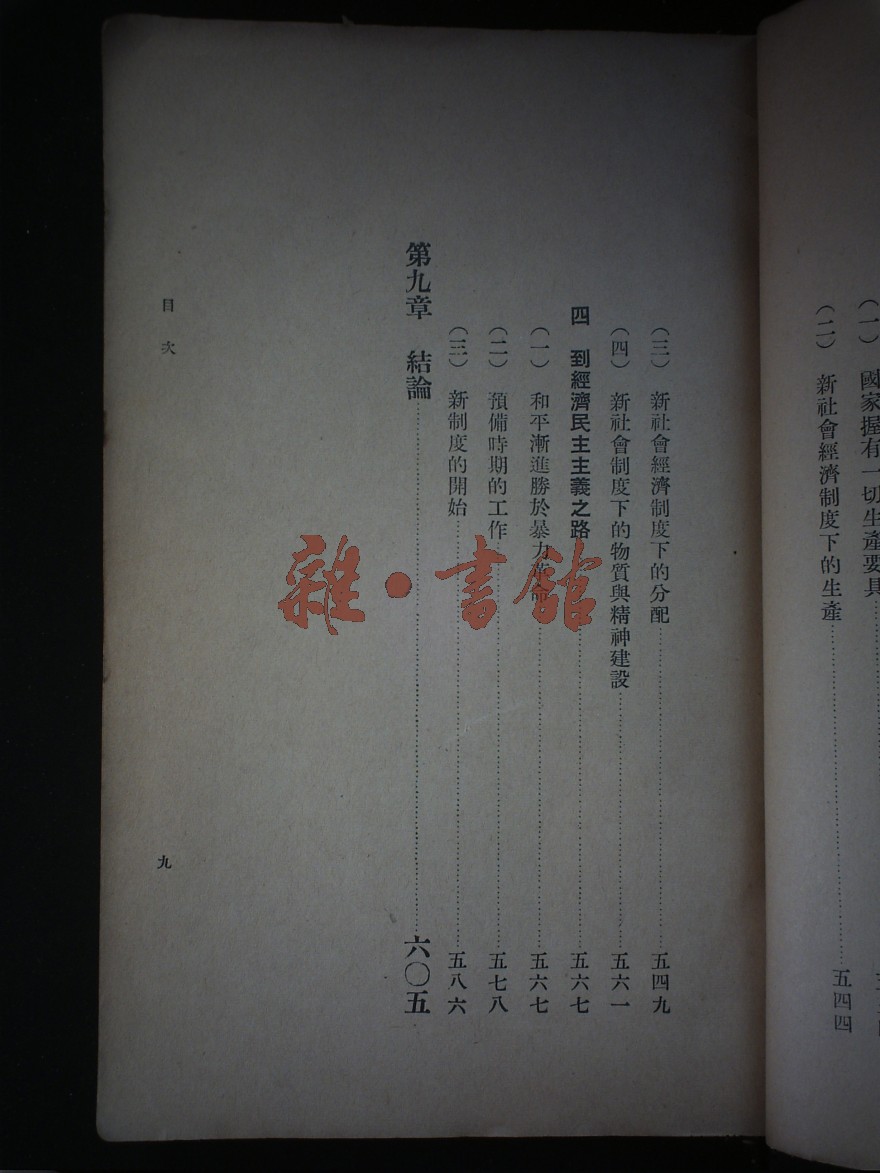 （一）　國家握有一切生產要具
（二）　新社會經濟制度下的生產……五四四
（三）　新社會經濟制度下的分配……五四九
（四）　新社會制度下的物質與精神建設……五六一
四　到經濟民主主義之路……五六七
（一）　和平漸進勝於暴力革命……五六七
（二）　預備時期的工作……五七八
（三）　新制度的開始……五八六
第九章　結論……六〇五
目次
九
雜·書館